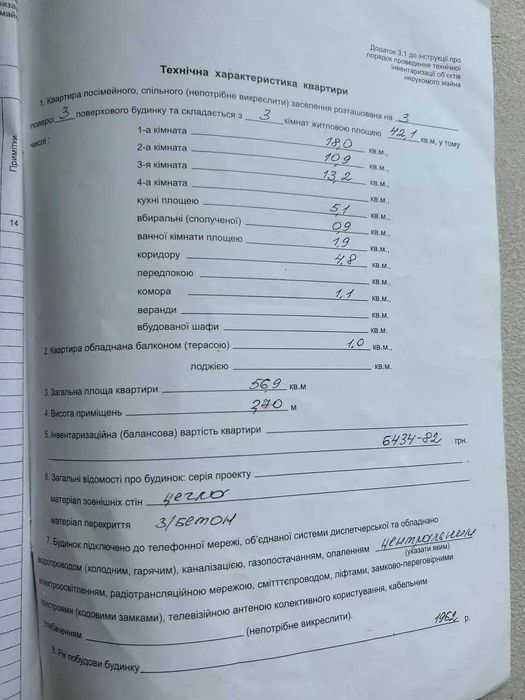 Додаток 3.1 до інструкції про
порядок проведення технічної
інвентаризації об'єктів
нерухомого майна
Технічна характеристика квартири
1. Квартира посімейного, спільного (непотрібне викреслити) заселення розташована на 3
поверсі 3 поверхового будинку та складається з 3 кімнат житловою площею 42,1 кв.м, у тому
числі :
1-а кімната 18,0 кв.м.,
2-а кімната 10,9 кв.м.,
3-я кімната 13,2 кв.м.,
4-а кімната кв.м.,
кухні площею 5,1 кв.м.,
вбиральні (сполученої) 09 кв.м.,
ванної кімнати площею 1,9 кв.м.,
коридору 4,8 кв.м.,
передпокою кв.м.,
комора 1,1 кв.м.,
веранди кв.м.
вбудованої шафи кв.м.
2. Квартира обладнана балконом (терасою) 1,0 кв.м.,
лоджією кв.м.
3. Загальна площа квартири 56,9 кв.м
4. Висота приміщень 2,70 м
5. Інвентаризаційна (балансова) вартість квартири 6434-82 грн.
6. Загальні відомості про будинок: серія проекту
матеріал зовнішніх стін цегла
матеріал перекриття З/бетон
7. Будинок підключено до телефонної мережі, об'єднаної системи диспетчерської та обладнано
водопроводом (холодним, гарячим), каналізацією, газопостачанням, опаленням
(указати яким)
електроосвітленням, радіотрансляційною мережою, сміттєпроводом, ліфтами, замково-переговорними
пристроями (кодовими замками), телевізійною антеною колективного користування, кабельним
телебаченням (непотрібне викреслити).
8. Рік побудови будинку 1962 р.
Примітки
14